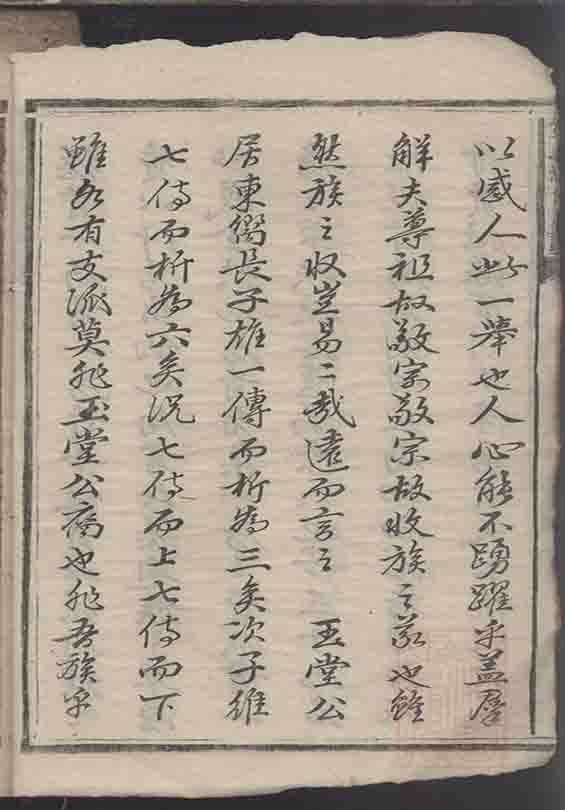 以感人此一舉也人心能不踴躍乎盖嘗
觧夫尊祖故敬宗敬宗故收族之義也雖
然族之收豈易二哉遠而言之　玉堂公
居東鄉長子雄一傳而析為三矣次子維
七傳而析為六矣況七傳而上七傳而下
雖各有支派莫非玉堂公裔也非吾族乎